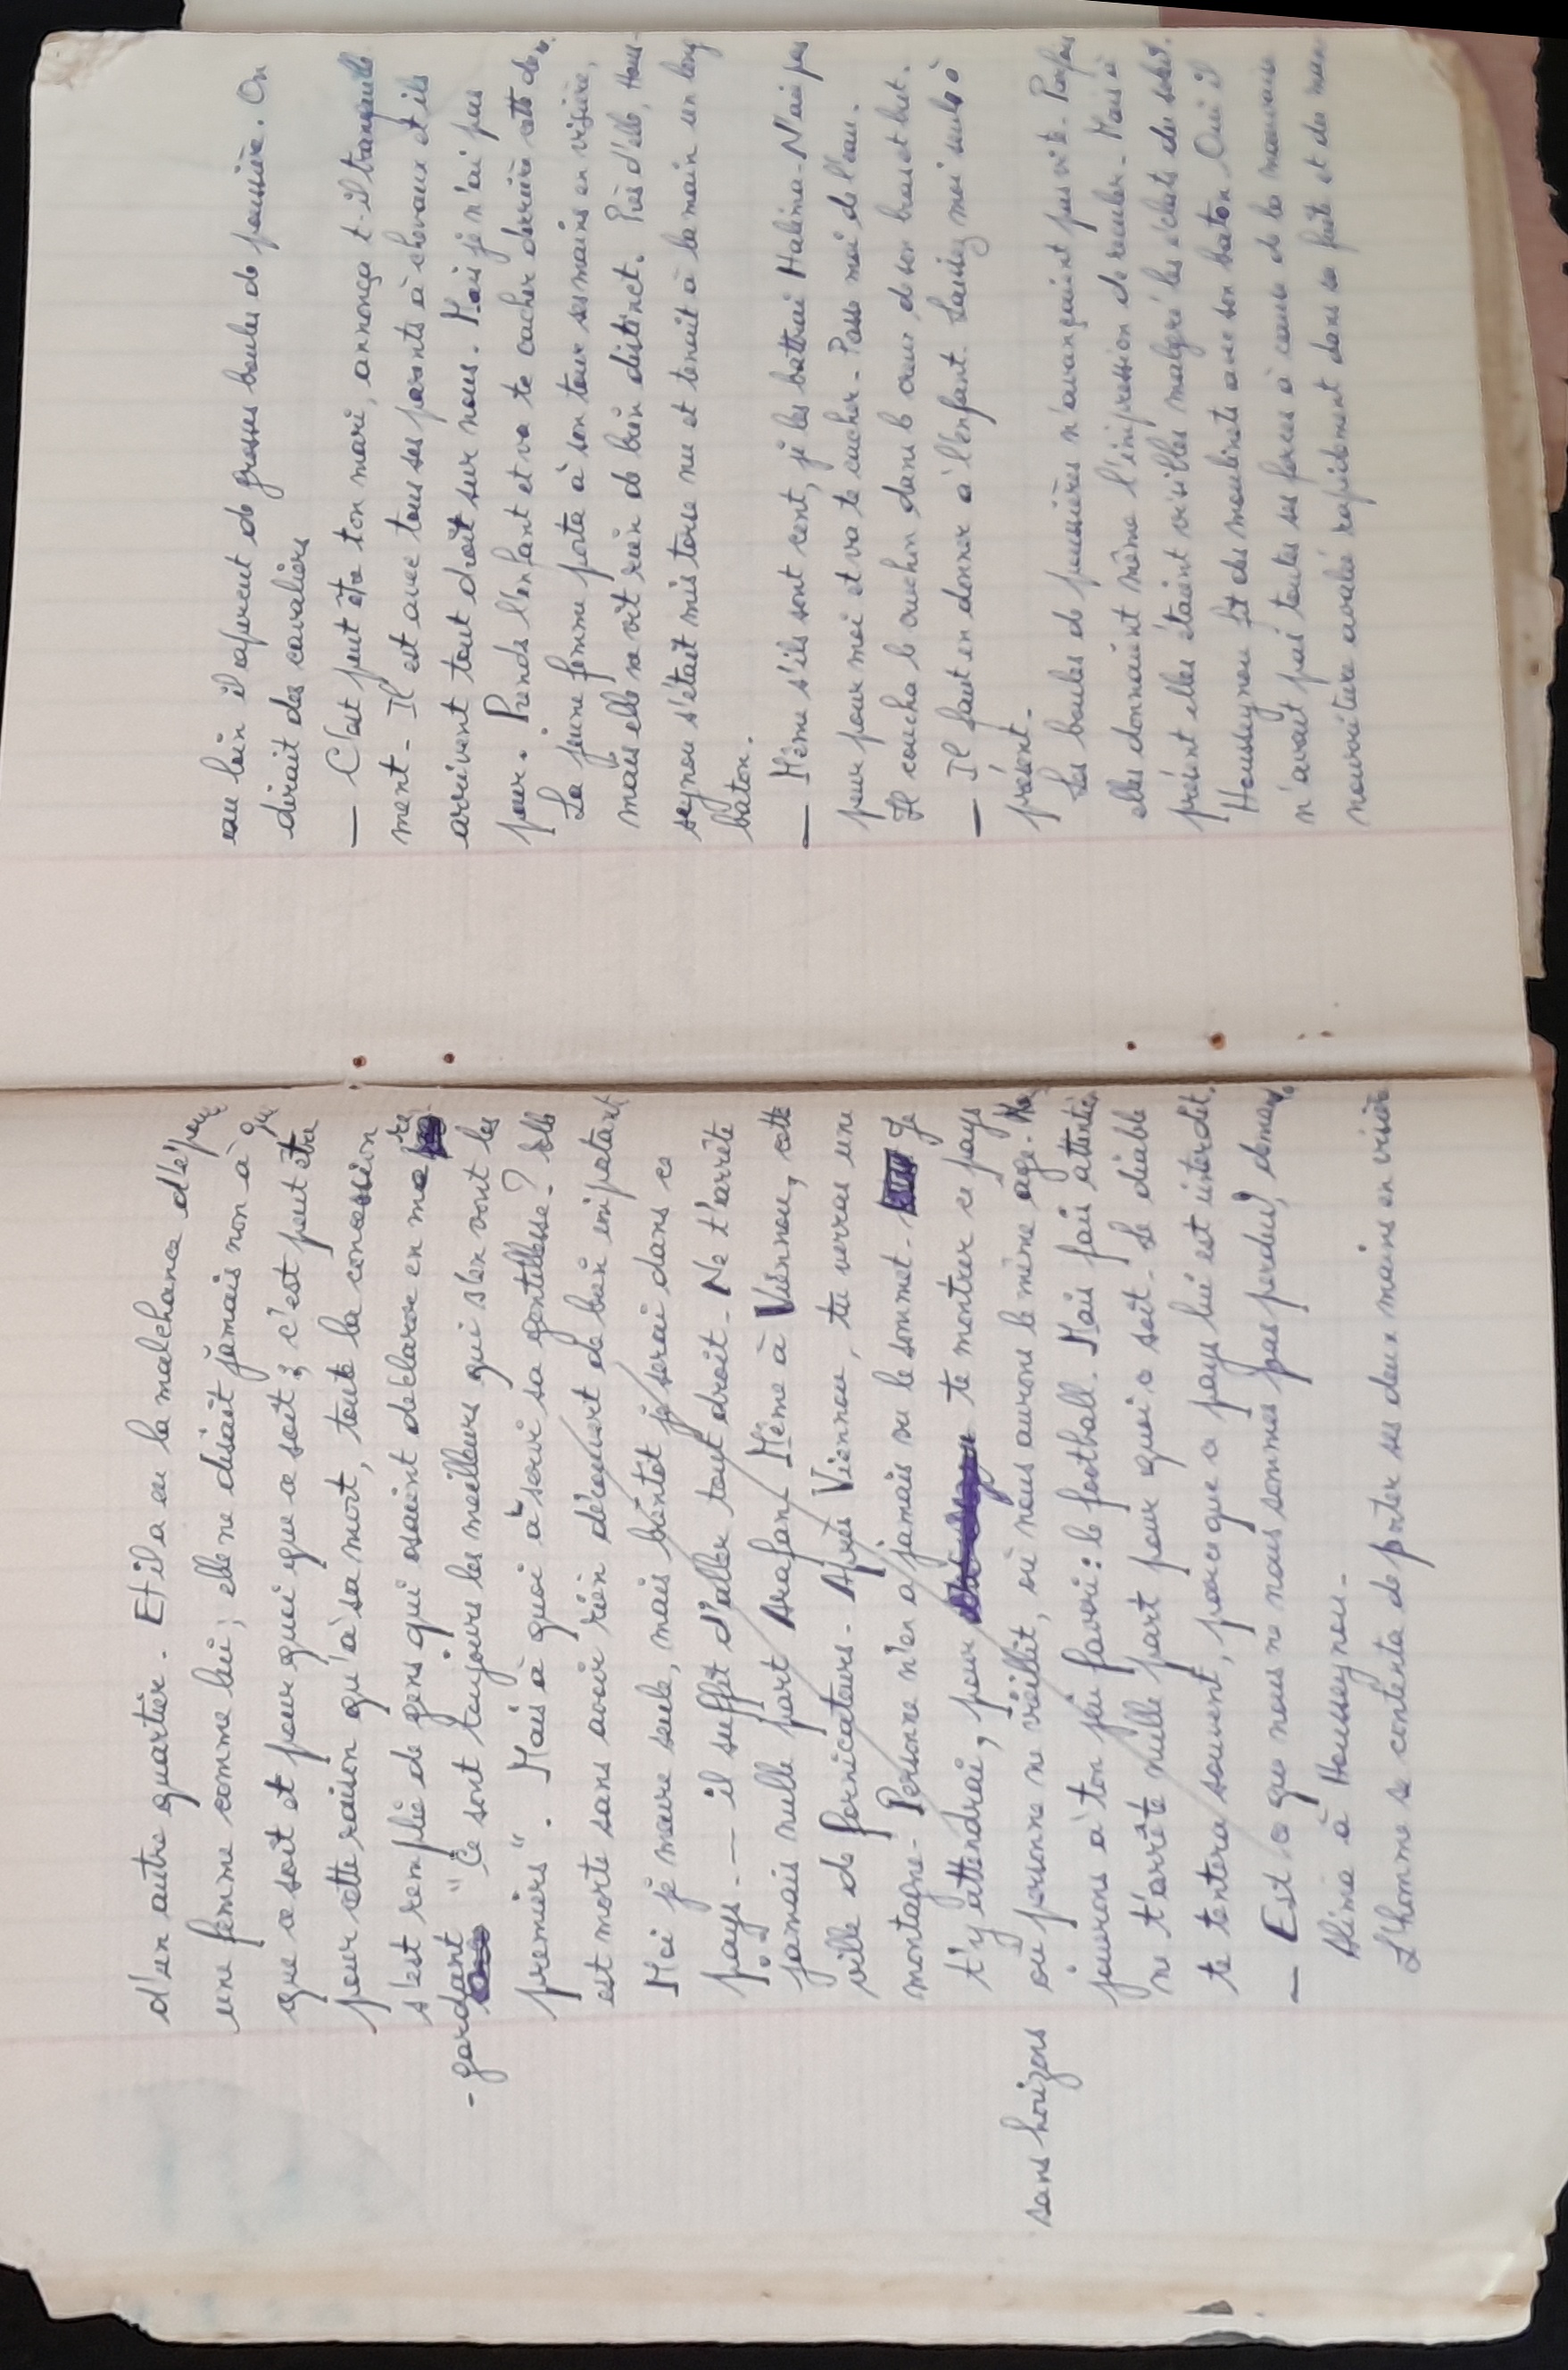 d'un autre quartier. Et il a eu la malchance d'épou
une femme comme lui ; elle ne disait jamais non à qui
que ce soit et pour quoi que ce soit ; c'est peut être
pour cette raison qu'à sa mort, toute la concession
s'est remplie de gens qui osaient déclarer en me re
-gardant "Ce sont toujours les meilleurs qui s'en vont les
premiers". Mais à quoi a servi sa gentillesse ? Elle
est morte sans avoir rien découvert de bien important
Moi je meure seule, mais bientôt je serai dans ce
pays. — il suffit d'aller tout droit. Ne t'arrête
jamais nulle part Arafan Même à Viennou, cette
ville de fornicateurs. Après Viennou, tu verras une
montagne. Personne n'en a jamais vu le sommet. Je
t'y attendrai, pour te montrer ce pays
sans horizons où personne ne vieillit, où nous aurons le même age. No
jouerons à ton jeu favori : le football. Mais fais attention
ne t'arrête nulle part pour quoi ce soit. Le diable
te tentera souvent, parce que ce pays lui est interdit.
— Est ce que nous ne nous sommes pas perdu ? demand
Alima à Housseynou.
L'homme se contenta de porter ses deux mains en visière
au loin il aperçut de grosses boules de poussière. On
dirait des cavaliers
— C'est peut être ton mari, annonça t-il tranquille
ment. Il est avec tous ses parents à chevaux et ils
arrivent tout droit sur nous. Mais je n'ai pas
peur. Prends l'enfant et va te cacher derrière cette
La jeune femme porta à son tour ses mains en visière,
mais elle ne vit rien de bien distinct. Près d'elle, Hous-
seynou s'était mis torse nu et tenait à la main un long
baton.
— Même s'ils sont cent, je les battrai Halima. N'aie pas
peur pour moi et va te cacher. Passe moi de l'eau.
Il coucha le bouchon dans le creux de son bras et but.
— Il faut en donner à l'enfant. Laissez moi seul à
présent.
Les boules de poussières n'avançaient pas vite. Parfois
elles donnaient même l'impression de reculer. Mais à
présent elles étaient visibles malgré les éclats du soleil.
Housseynou fit des moulinets avec son baton. Oui il
n'avait pas toutes ses forces à cause de la mauvaise
nourriture avalée rapidement dans sa fuite et du man